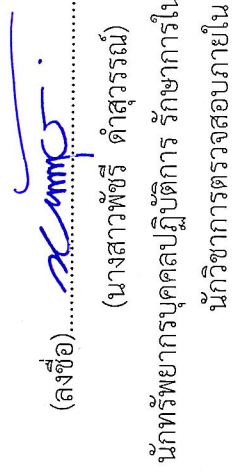 (ลงชื่อ)
(นางสาวพัชรี ดำสุวรรณ์)
นักทรัพยากรบุคคลปฏิบัติการ รักษาการใน
นักวิชาการตรวจสอบภายใน